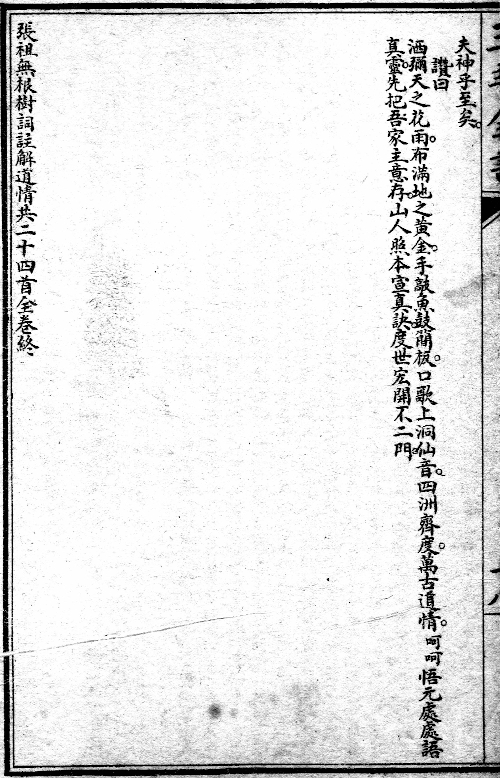 夫神乎至矣。
讚曰
洒彌天之花雨。布滿地之黃金。手敲魚鼓簡板。口歌上洞仙音。四洲齊度。萬古道情。呵呵悟元處處語
真靈先把吾家主意存。山人照本宣真訣度世宏開不二門。
張祖無根樹詞註解道情共二十四首全卷終